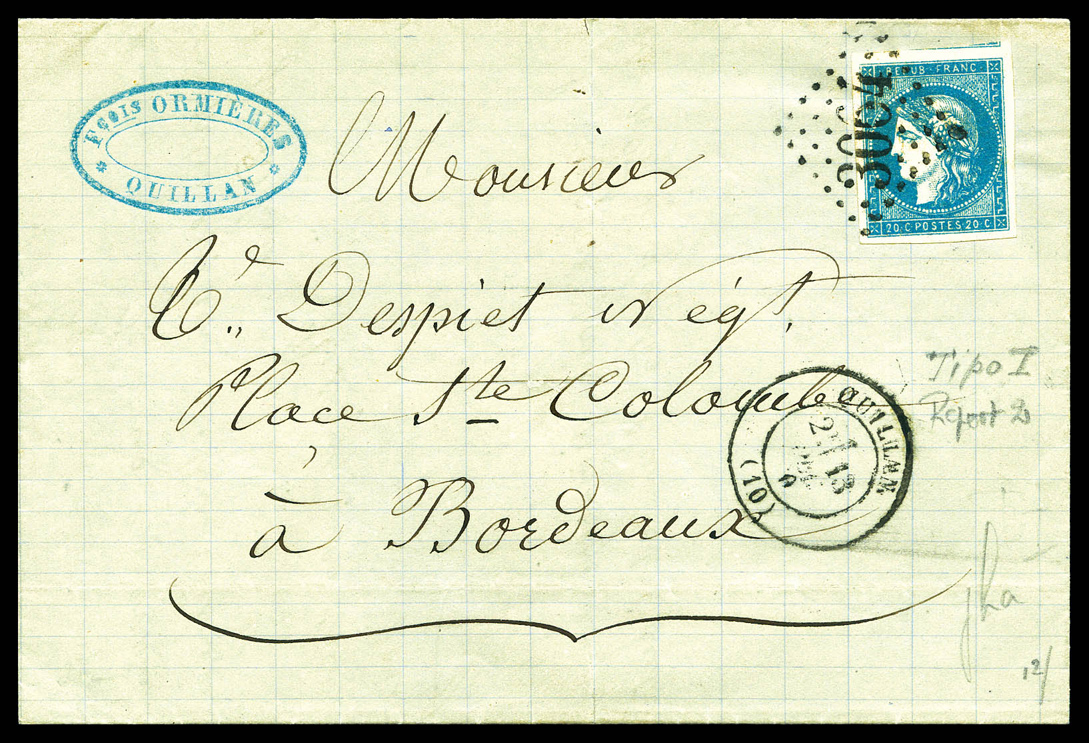 Fçois ORMIÈRES
QUILLAN
3064
REPUB · FRANC
20 · C · POSTES 20 · C
Monsieur
Cd,, Despiet Négt.
Place Ste Colombe
à Bordeaux
QUILLAN
(10)
Tipo I
Report 2
12/